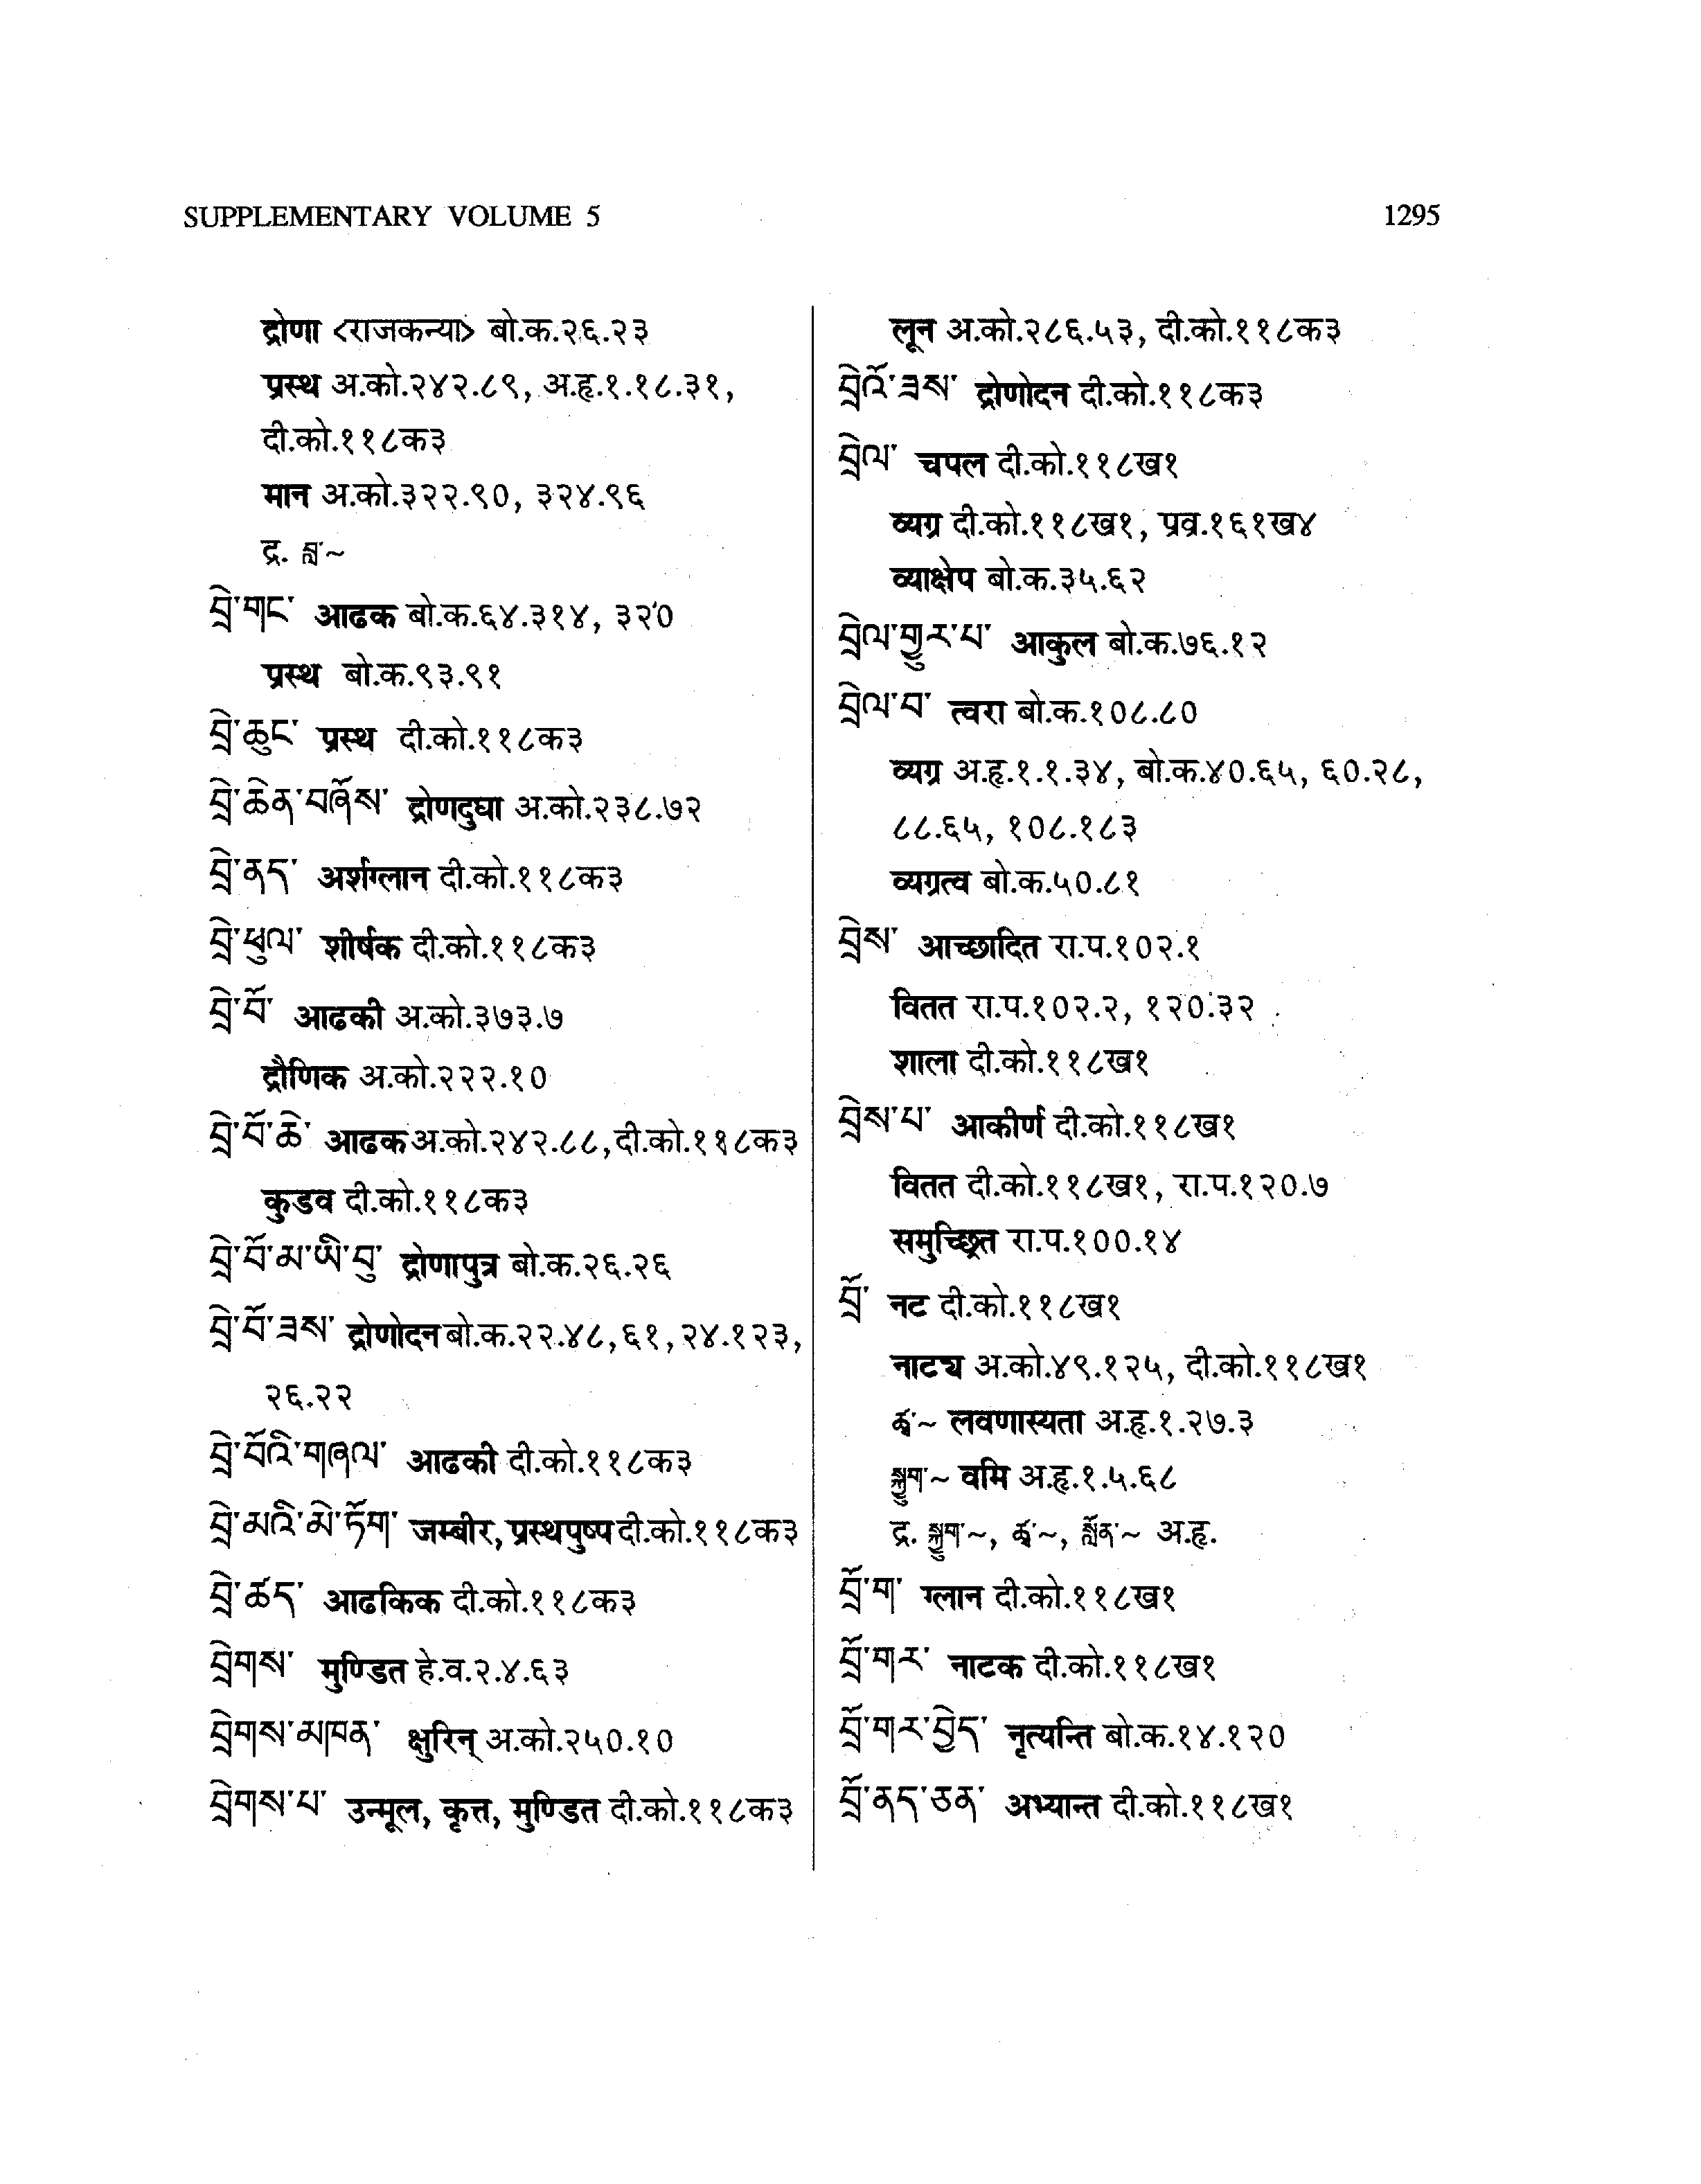 SUPPLEMENTARY VOLUME 5
1295
द्रोणा <राजकन्या> बो.क.२६.२३
प्रस्थ अ.को.२४२.८९, अ.हृ.१.१८.३१,
दी.को.११८क३
मान अ.को.३२२.९०, ३२४.९६
द्र. ~
བྲེ་གང་ आढक बो.क.६४.३१४, ३२०
प्रस्थ बो.क.९३.९१
བྲེ་ཆུང་ प्रस्थ दी.को.११८क३
བྲེ་ཆེན་བཞོས་ द्रोणदुघा अ.को.२३८.७२
བྲེ་ནད་ अर्शग्लान दी.को.११८क३
བྲེ་ཕུལ་ शीर्षक दी.को.११८क३
བྲེ་བོ་ आढकी अ.को.३७३.७
द्रौणिक अ.को.२२२.१०
བྲེ་བོ་ཆེ་ आढक अ.को.२४२.८८, दी.को.११८क३
कुडव दी.को.११८क३
བྲེ་བོ་མ་ཡི་བུ་ द्रोणापुत्र बो.क.२६.२६
བྲེ་བོ་ཟས་ द्रोणोदन बो.क.२२.४८, ६१, २४.१२३,
२६.२२
བྲེ་བོའི་གཞལ་ आढकी दी.को.११८क३
བྲེ་མའི་མེ་ཏོག་ जम्बीर, प्रस्थपुष्प दी.को.११८क३
བྲེ་ཚད་ आढकिक दी.को.११८क३
བྲེགས་ मुण्डित हे.व.२.४.६३
བྲེགས་མཁན་ क्षुरिन् अ.को.२५०.१०
བྲེགས་པ་ उन्मूल, कृत्त, मुण्डित दी.को.११८क३
लून अ.को.२८६.५३, दी.को.११८क३
བྲེའོ་ཟས་ द्रोणोदन दी.को.११८क३
བྲེལ་ चपल दी.को.११८ख१
व्यग्र दी.को.११८ख१, प्रव्र.१६१ख४
व्याक्षेप बो.क.३५.६२
བྲེལ་གྱུར་པ་ आकुल बो.क.७६.१२
བྲེལ་བ་ त्वरा बो.क.१०८.८०
व्यग्र अ.हृ.१.१.३४, बो.क.४०.६५, ६०.२८,
८८.६५, १०८.१८३
व्यग्रत्व बो.क.५०.८१
བྲེས་ आच्छादित रा.प.१०२.१
वितत रा.प.१०२.२, १२०.३२
शाला दी.को.११८ख१
བྲེས་པ་ आकीर्ण दी.को.११८ख१
वितत दी.को.११८ख१, रा.प.१२०.७
समुच्छ्रित रा.प.१००.१४
བྲོ་ नट दी.को.११८ख१
नाट्य अ.को.४९.१२५, दी.को.११८ख१
ཚྭ་~ लवणास्यता अ.हृ.१.२७.३
སྐྱུག་~ वमि अ.हृ.१.५.६८
द्र. སྐྱུག་~, ཚྭ་~, སློན་~ अ.हृ.
བྲོ་ག་ ग्लान दी.को.११८ख१
བྲོ་གར་ नाटक दी.को.११८ख१
བྲོ་གར་བྱེད་ नृत्यन्ति बो.क.१४.१२०
བྲོ་ནད་ཅན་ अभ्यान्त दी.को.११८ख१